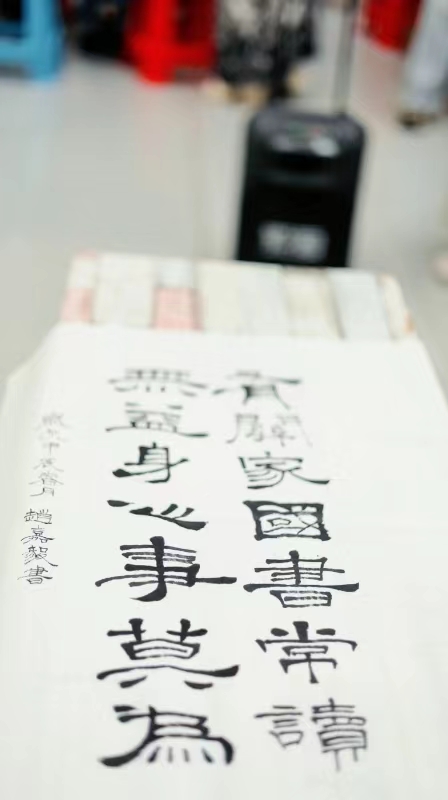 有關家國書常讀
無益身心事莫為
歲次甲辰春月 趙嘉毅書